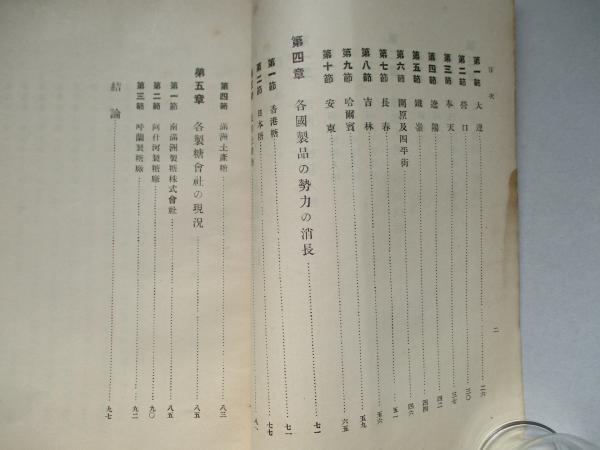 目次
第一節 大連 二六
第二節 營口 三〇
第三節 奉天 三七
第四節 遼陽 四二
第五節 鐵嶺 四四
第六節 開原及四平街 四六
第七節 長春 五一
第八節 吉林 五六
第九節 哈爾賓 五九
第十節 安東 六五
第四章 各國製品の勢力の消長 七一
第一節 香港糖 七一
第二節 日本糖 七七
二
第四節 滿洲土產糖 八三
第五章 各製糖會社の現況 八五
第一節 南滿洲製糖株式會社 八五
第二節 阿什河製糖廠 九〇
第三節 呼蘭製糖廠 九二
結論 九七